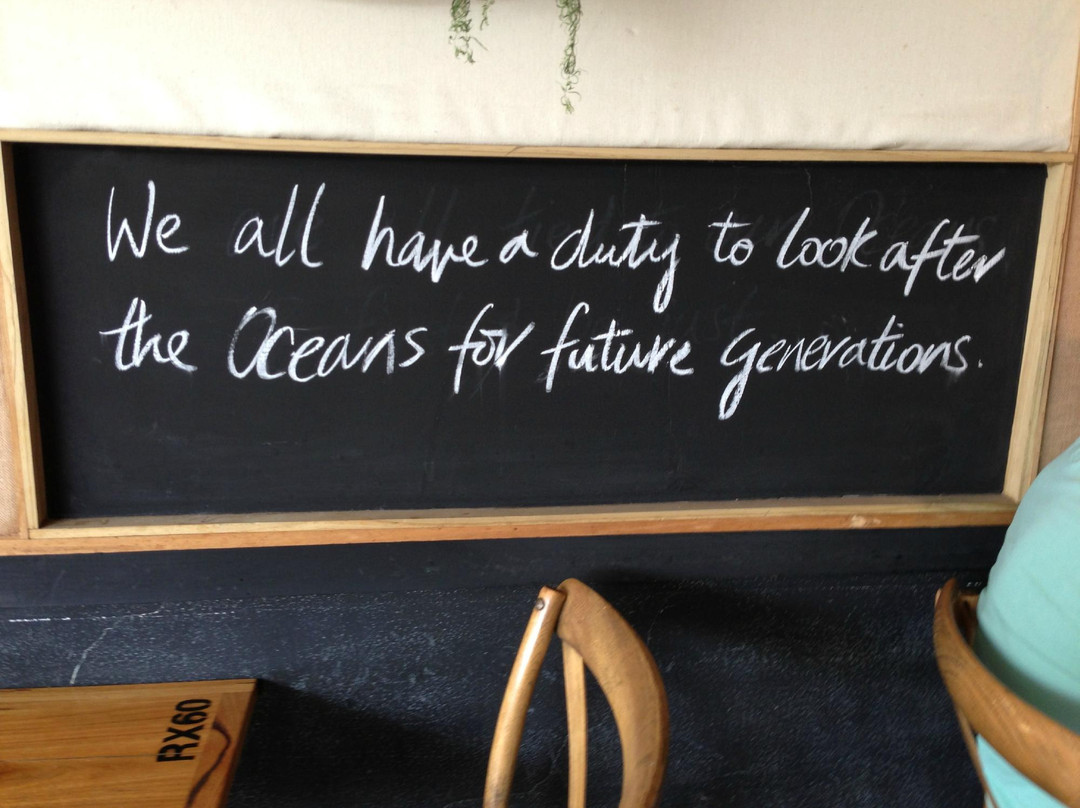 We all have a duty to look after
the Oceans for future generations.
RX60